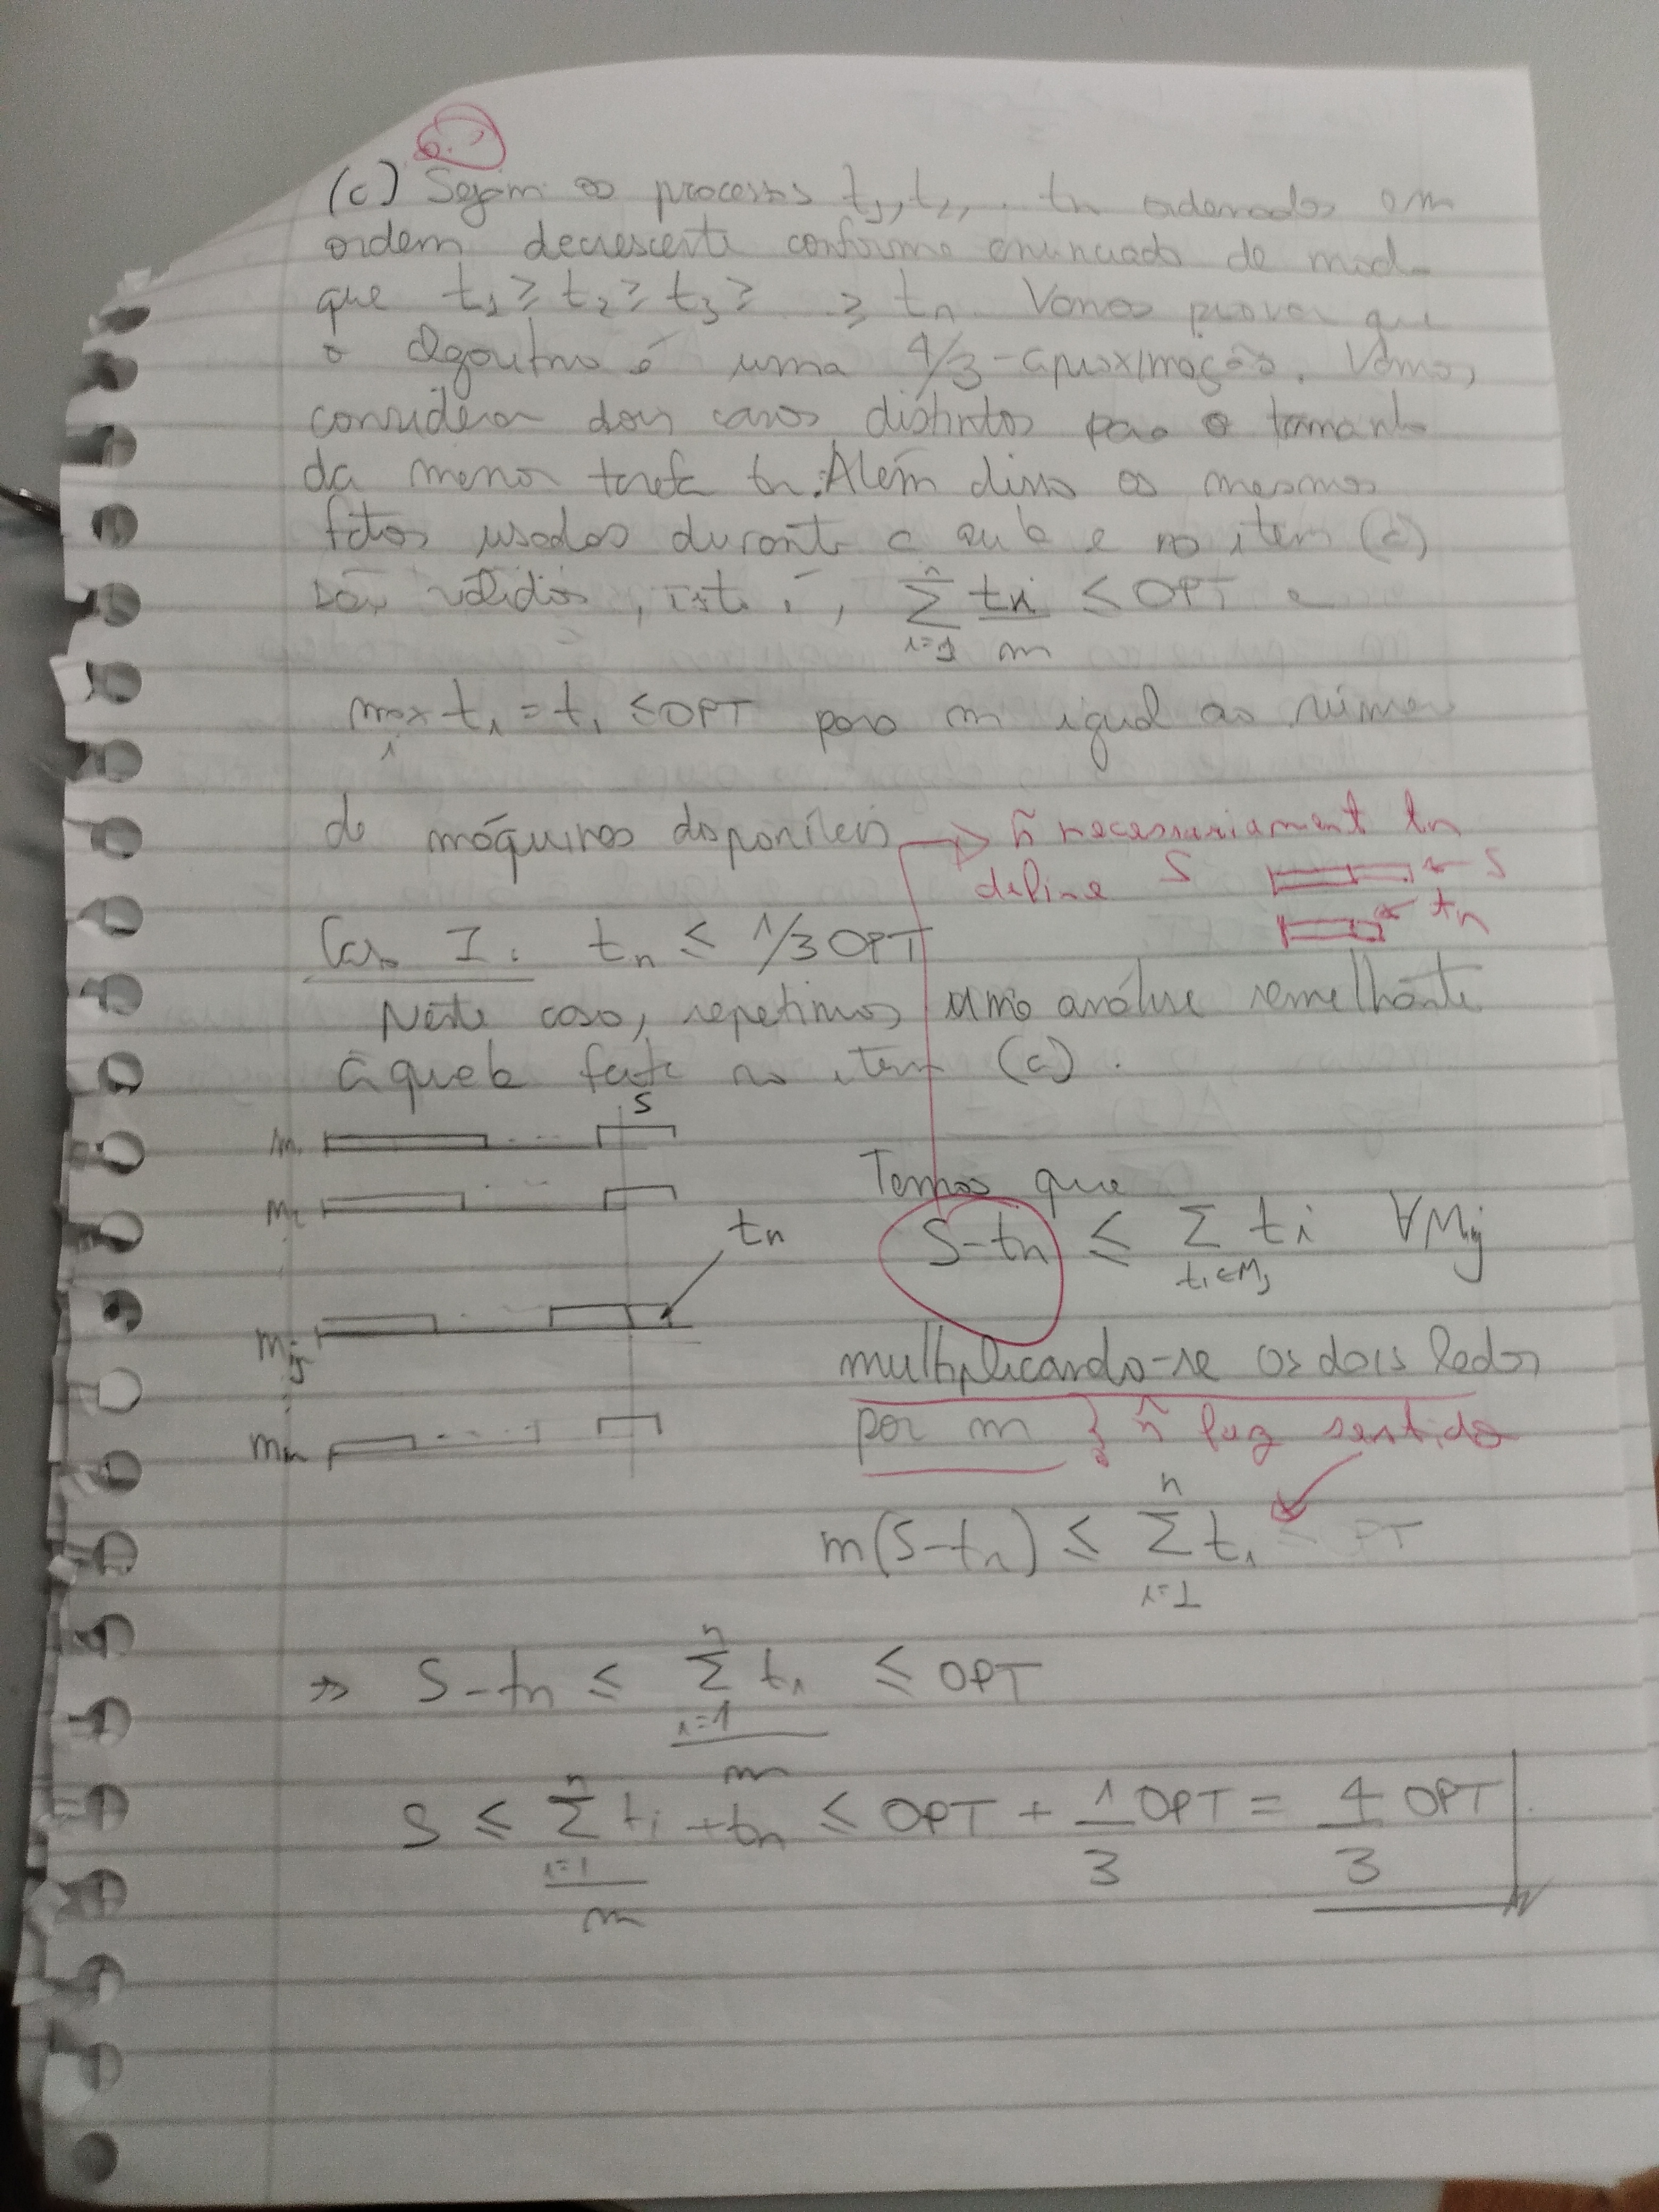 (c) Sejam os processos t1, t2, . . tn ordenados em
ordem decrescente conforme enunciado de modo
que t1 ≥ t2 ≥ t3 ≥ .. ≥ tn. Vamos provar que
o algoritmo é uma 4/3-aproximação. Vamos
considerar dois casos distintos para o tamanho
da menor tarefa tn. Além disso os mesmos
fatos usados durante a aula e no item (a)
são válidos, isto é, Σ_{i=1}^{n} ti/m ≤ OPT e
max_i ti = t1 ≤ OPT para m igual ao número
de máquinas disponíveis
ñ necessariament tn
define S
← S
← tn
Caso I: tn ≤ 1/3 OPT
Neste caso, repetimos uma análise semelhante
àquela feita no item (a).
S
M1
M2
tn
Mj
Mm
Temos que
S-tn ≤ Σ_{ti∈Mj} ti ∀Mj
multiplicando-se os dois lados
por m } ñ faz sentido
m(S-tn) ≤ Σ_{i=1}^{n} ti ≤ OPT
⇒ S-tn ≤ Σ_{i=1}^{n} ti/m ≤ OPT
S ≤ Σ_{i=1}^{n} ti/m + tn ≤ OPT + 1/3 OPT = 4/3 OPT